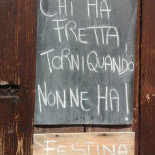 CHI HA
FRETTA,
TORNI QUANDO
NON NE HA!